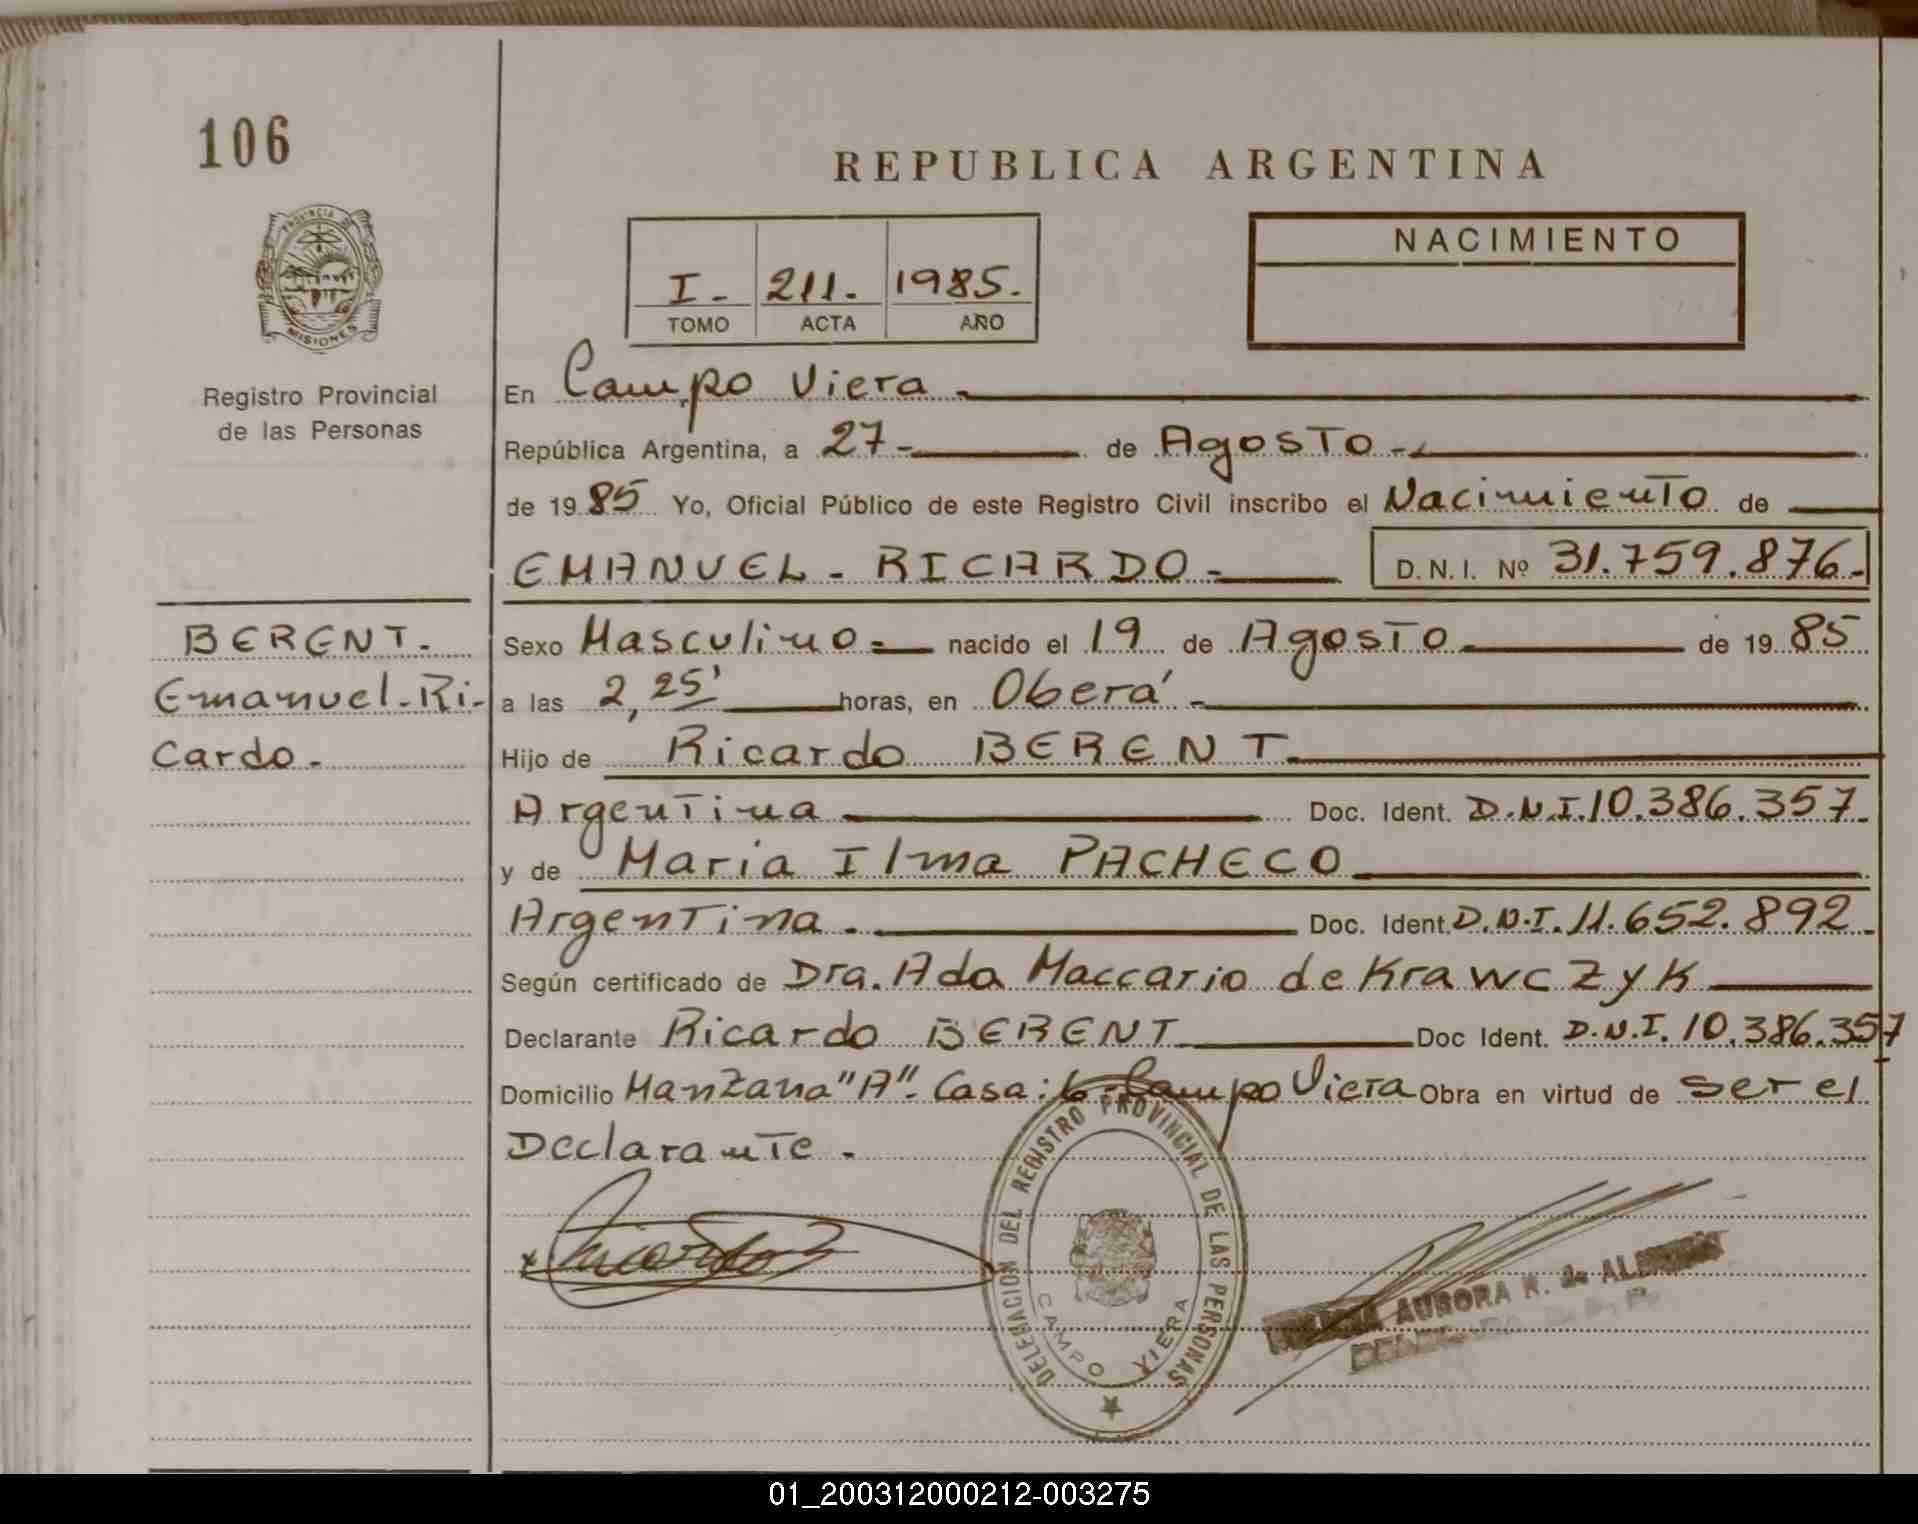 106
REPUBLICA ARGENTINA
PROVINCIA DE
MISIONES
Registro Provincial
de las Personas
I - 211. 1985.
TOMO ACTA AÑO
NACIMIENTO
En Campo Viera -
República Argentina, a 27 - de Agosto -
de 1985 Yo, Oficial Público de este Registro Civil inscribo el Nacimiento de
EMANUEL - RICARDO - D.N.I. Nº 31.759.876-
BERENT.
Emanuel-Ri-
Cardo -
Sexo Masculino - nacido el 19 de Agosto de 1985
a las 2,25' horas, en Oberá -
Hijo de Ricardo BERENT
Argentina Doc. Ident. D.N.I. 10.386.357-
y de Maria Ilma PACHECO
Argentina - Doc. Ident. D.N.I. 11.652.892-
Según certificado de Dra. Ada Maccario de Krawczyk
Declarante Ricardo BERENT Doc Ident. D.N.I. 10.386.357
Domicilio Manzana "A" - Casa: 6 - Campo Viera Obra en virtud de ser el
Declarante -
Ricardo
DELEGACION DEL REGISTRO PROVINCIAL DE LAS PERSONAS
CAMPO VIERA
AURORA N. de
01_200312000212-003275